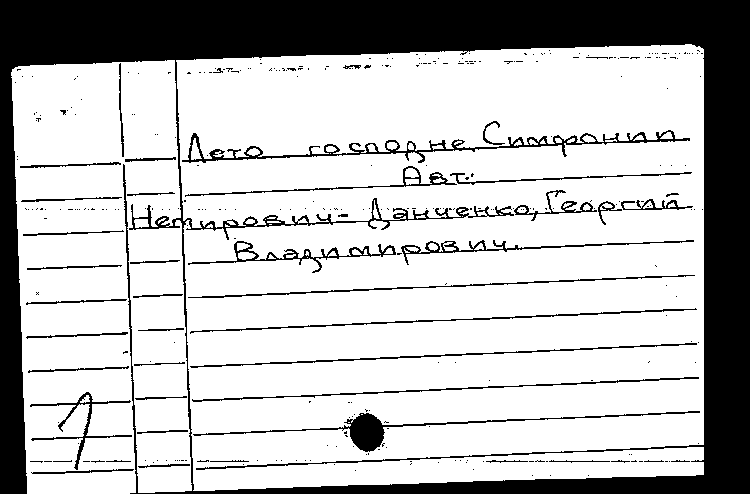 Лето господне. Симфонии
Авт.:
Немирович-Данченко, Георгий
Владимирович.
1